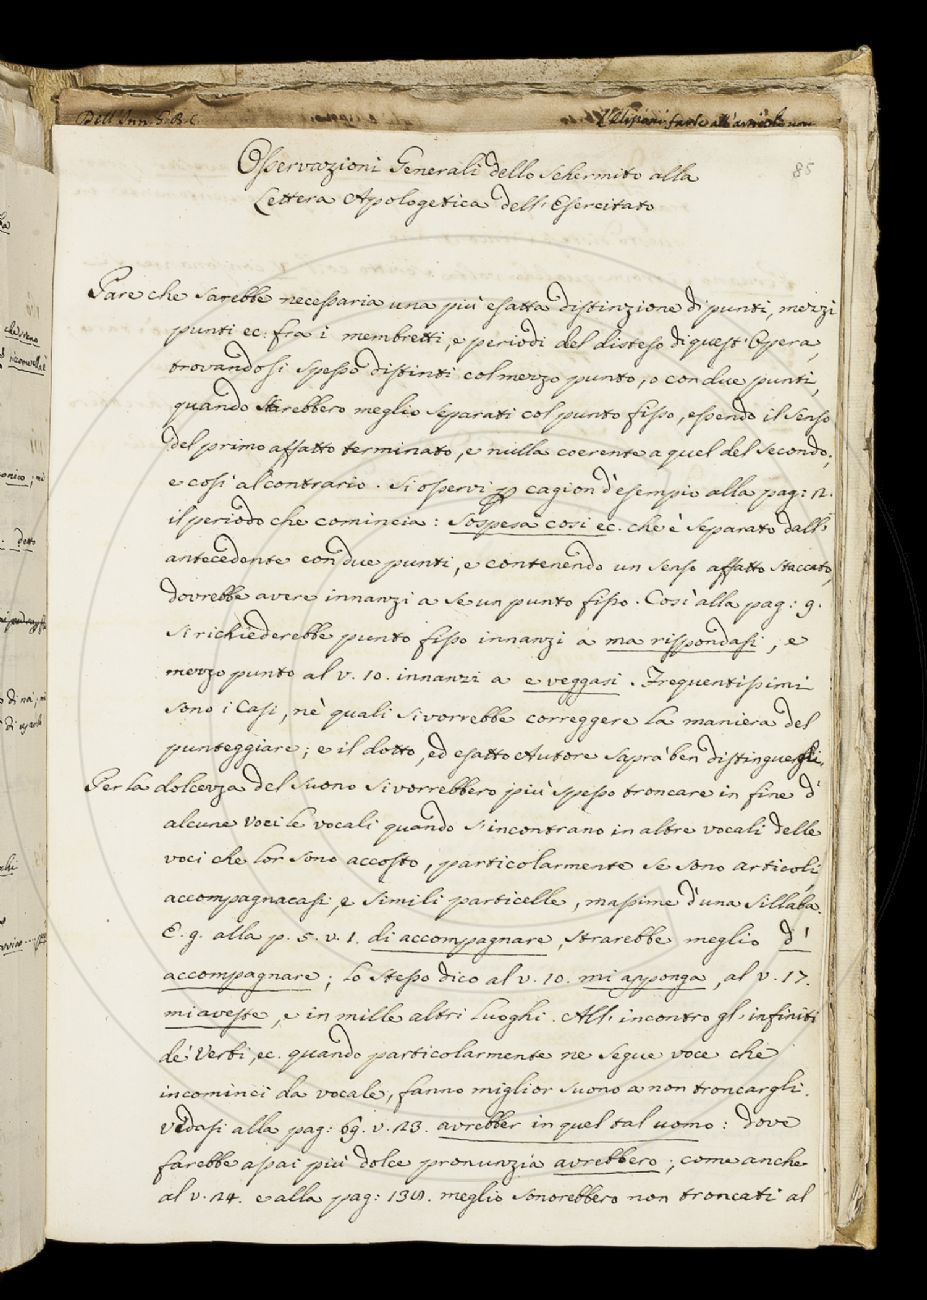 Dell' Inn. S. B. C.
85
Osservazioni Generali dello Schermito alla
Lettera Apologetica dell' Esercitato
Pare che sarebbe necessaria una più esatta distinzione di punti, mezzi
punti ec: fra i membretti, e periodi del disteso di quest' Opera,
trovandosi spesso distinti col mezzo punto, o con due punti,
quando starebbero meglio separati col punto fisso, essendo il senso
del primo affatto terminato, e nulla coerente a quel del secondo;
e così al contrario. Si osservi p cagion d'esempio alla pag: 12.
il periodo che comincia: Sospesa così ec. che è separato dall'
antecedente con due punti, e contenendo un senso affatto staccato,
dovrebbe avere innanzi a se un punto fisso. Così alla pag: 9.
si richiederebbe punto fisso innanzi a ma rispondasi, e
mezzo punto al v. 10. innanzi a e veggasi. Frequentissimi
sono i casi, nè quali si vorrebbe correggere la maniera del
punteggiare; e il dotto, ed esatto Autore saprà ben distinguergli.
Per la dolcezza del suono si vorrebbero più spesso troncare in fine d'
alcune voci le vocali quando s'incontrano in altre vocali delle
voci che lor sono accosto, particolarmente se sono articoli
accompagnacasi, e simili particelle, massime d'una sillaba.
E. g. alla p. 5. v. 1. di accompagnare, strarebbe meglio d'
accompagnare; lo stesso dico al v. 10. mi apponga, al v. 17.
mi aveste, e in mille altri luoghi. All' incontro gl' infiniti
de' Verbi, ec. quando particolarmente ne segue voce che
incominci da vocale, fanno miglior suono a non troncargli.
vedasi alla pag: 69. v. 23. avrebber in quel tal uomo: dove
farebbe assai più dolce pronunzia avrebbero; come anche
al v. 24. e alla pag: 139. meglio sonorebbero non troncati al